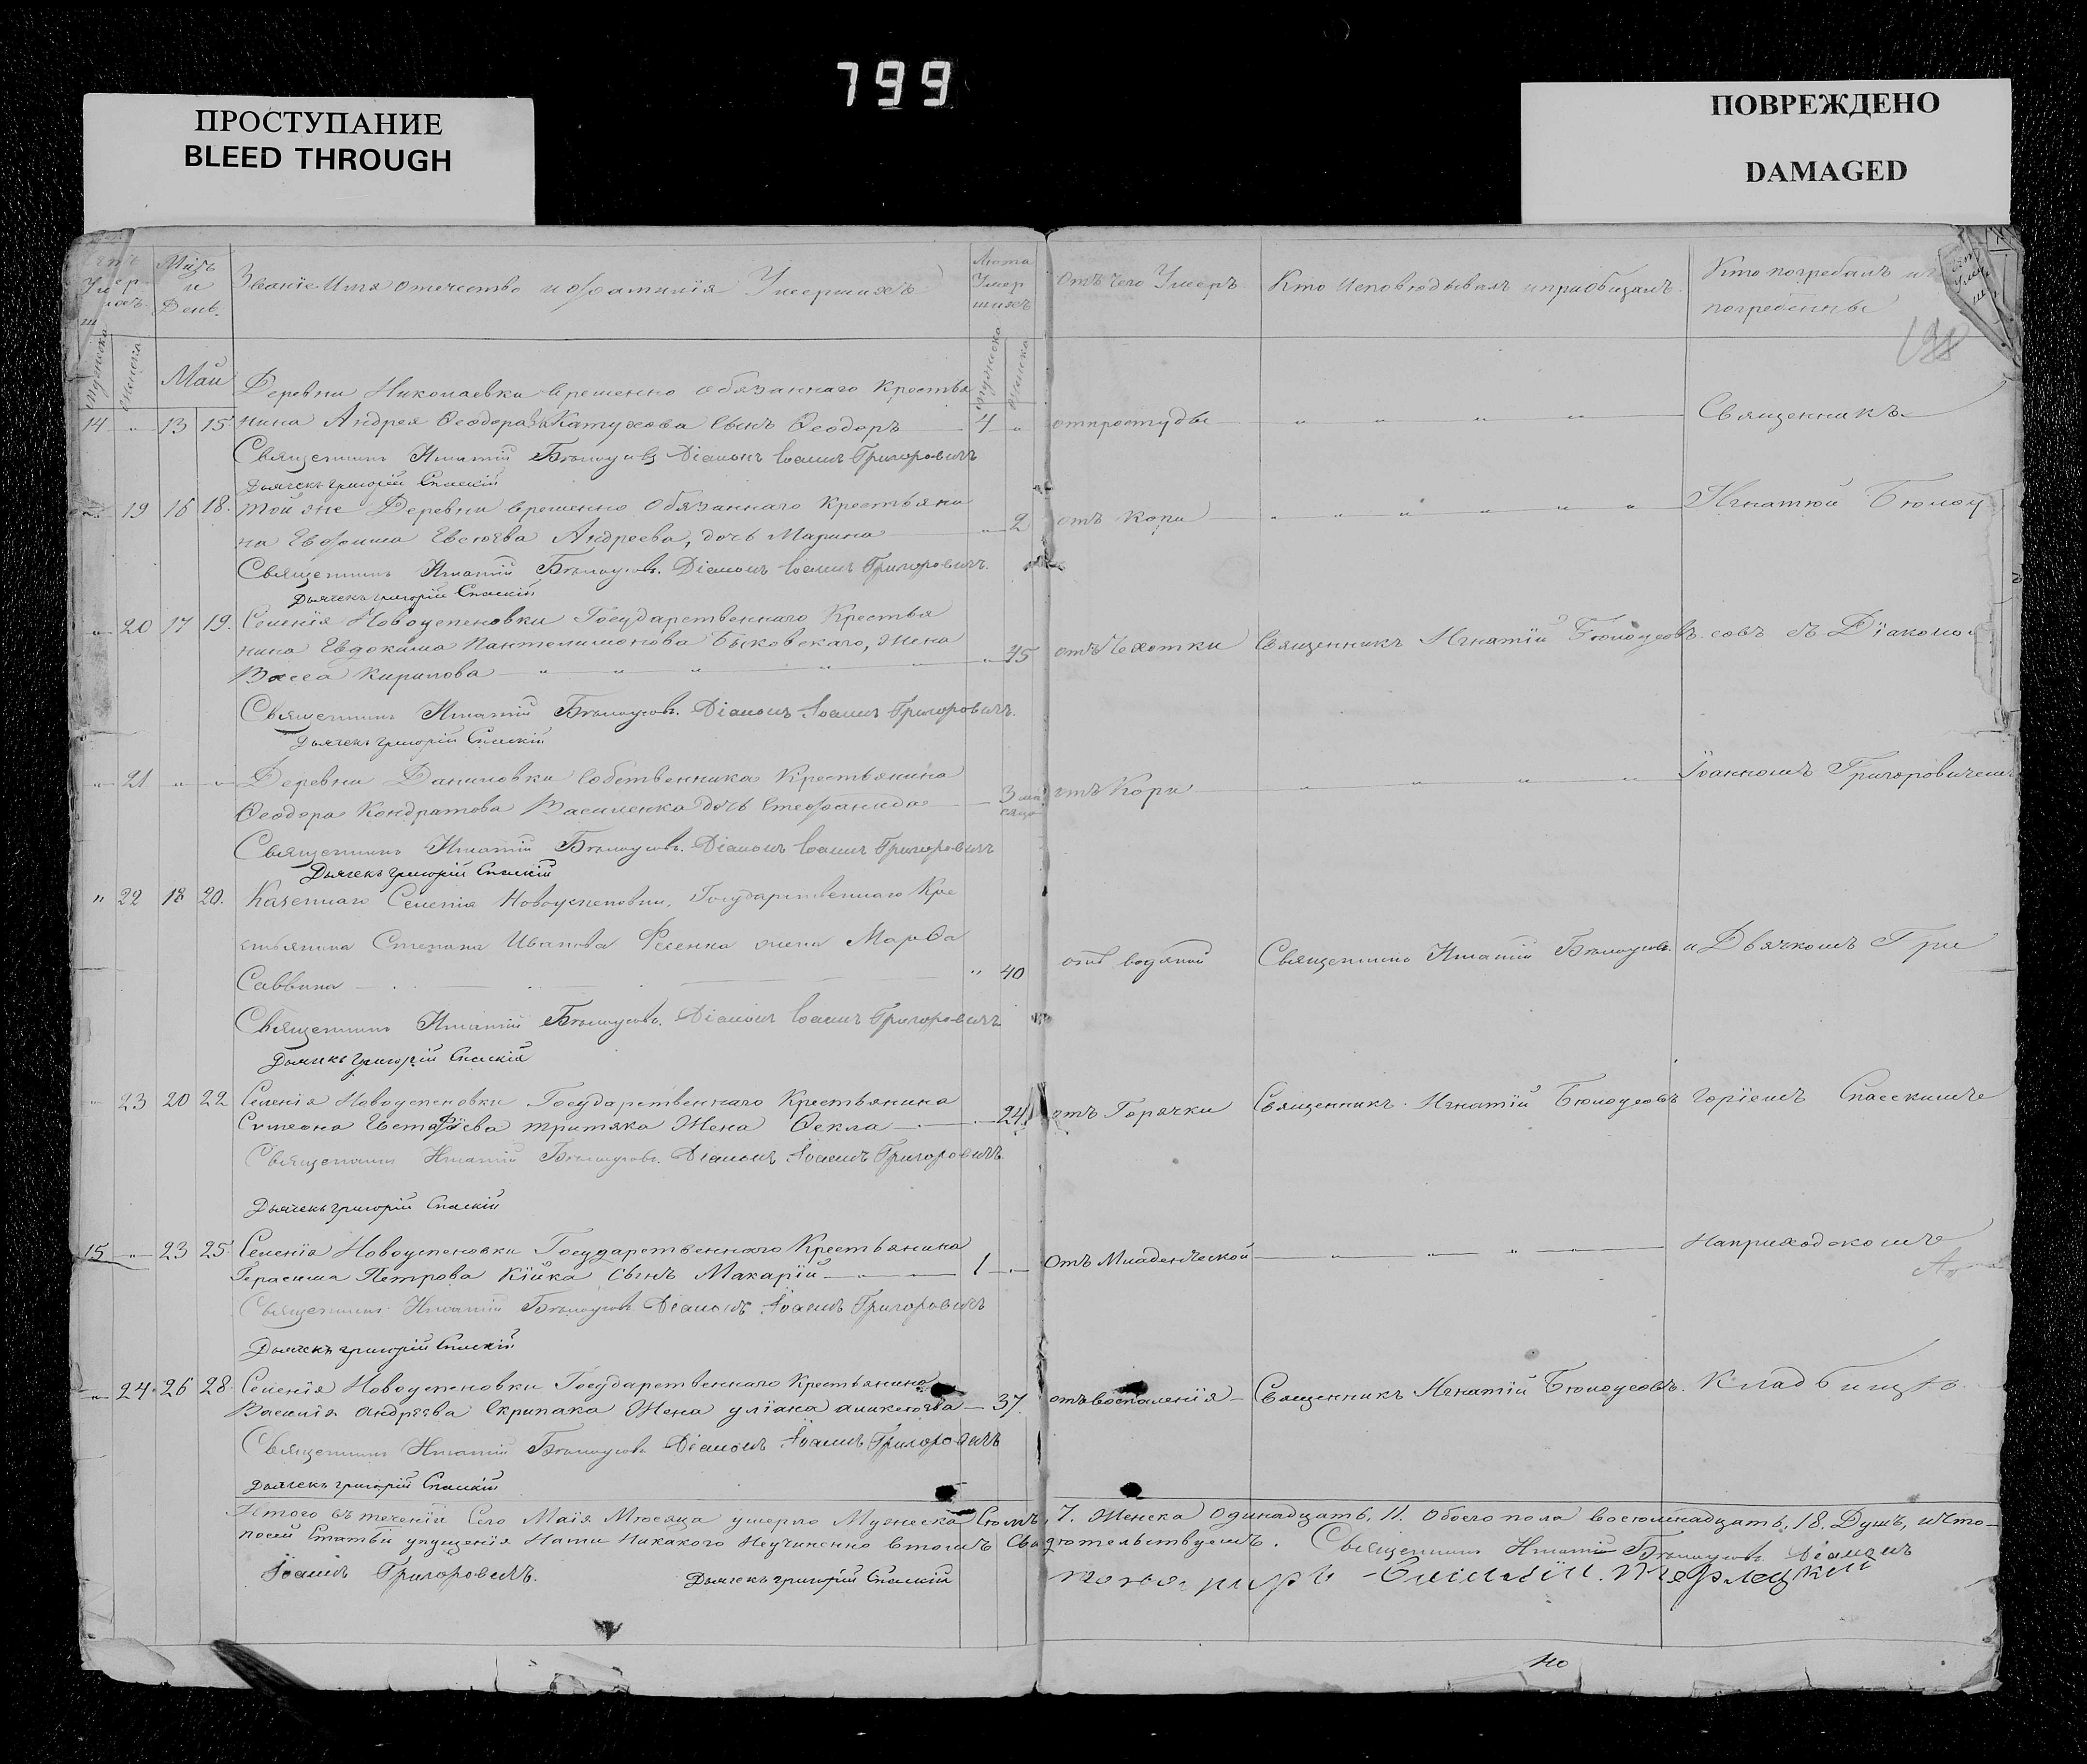 799
ПРОСТУПАНИЕ
BLEED THROUGH
ПОВРЕЖДЕНО
DAMAGED
Мць и День.
Званіе Имя отчество и фамилія Умершихъ
Лѣта Умершихъ
Отъ чего Умеръ
Кто исповѣдывалъ и пріобщалъ
Кто погребалъ и
погребенны
мужеска
женска
мужеска
женска
Май
Деревни Николаевки временно обязаннаго Крестья
14 " 13 15 нина Андрея Ѳеодорова Катухова Сынъ Ѳеодоръ 4 " отпростуды " " " " Священникъ
Священникъ Игнатій Бѣлоусовъ Діаконъ Іоаннъ Григоровичъ
Дьячекъ Григорій Спаскій
" 19 16 18. той же Деревни временно Обязаннаго Крестьяни
на Евфима Евсѣева Андреева, дочь Марина " 2 отъ Кори " " " " " " Игнатій Бѣлоу
Священникъ Игнатій Бѣлоусовъ. Діаконъ Іоаннъ Григоровичъ.
Дьячекъ Григорій Спаскій
" 20 17 19. Селенія Новоуспеновки Государственнаго Крестья
нина Евдокима Пантелимонова Быковскаго, Жена
Васса Кирилова " " " " " " 45 отъ Чахотки Священникъ Игнатій Бѣлоусовъ. совъ съ Діакономъ
Священникъ Игнатій Бѣлоусовъ. Діаконъ Іоаннъ Григоровичъ.
Дьячекъ Григорій Спаскій
" 21 " " Деревни Даниловки Собственника Крестьянина
Ѳеодора Кондратова Василенка дочь Стефанида 3 мѣ
сяца отъ Кори " " " " Іоанномъ Григоровичемъ
Священникъ Игнатій Бѣлоусовъ. Діаконъ Іоаннъ Григоровичъ
Дьячекъ Григорій Спаскій
" 22 18 20. Казеннаго Селенія Новоуспеновки, Государственнаго Кре
стьянина Степана Иванова Фесенка жена Марѳа
Саввина " 40 отъ водяной Священникъ Игнатій Бѣлоусовъ. и Дьячкомъ Гри
Священникъ Игнатій Бѣлоусовъ. Діаконъ Іоаннъ Григоровичъ
Дьячекъ Григорій Спаскій
" 23 20 22 Селенія Новоуспеновки Государственнаго Крестьянина
Симеона Евстафіева Тритяка Жена Ѳекла 24 отъ Горячки Священникъ Игнатій Бѣлоусовъ горіемъ Спасскимъ
Священникъ Игнатій Бѣлоусовъ. Діаконъ Іоаннъ Григоровичъ
Дьячекъ Григорій Спаскій
15 " 23 25 Селенія Новоуспеновки Государственнаго Крестьянина
Герасима Петрова Кійка сынъ Макарій 1 " Отъ Младенческой " " " На приходскомъ
Священникъ Игнатій Бѣлоусовъ Діаконъ Іоаннъ Григоровичъ
Дьячекъ Григорій Спаскій
" 24. 26 28 Селенія Новоуспеновки Государственнаго Крестьянина
Василія Андрѣева Скрипака Жена уліана аникеѣва 37. отъ воспаленія Священникъ Игнатій Бѣлоусовъ. Кладбищѣ.
Священникъ Игнатій Бѣлоусовъ Діаконъ Іоаннъ Григоровичъ
Дьячекъ Григорій Спаскій
Итого въ теченіи Сего Маія Мѣсяца умерло Мужеска Сѣмъ, 7. Женска Одинадцать, 11. Обоего пола восѣмнадцать, 18. Душъ, и что
посей Статьи упущенія Нами Никакого Неучиненно втомъ Свидѣтельствуемъ. Священникъ Игнатій Бѣлоусовъ. Діаконъ
Іоаннъ Григоровичъ. Дьячекъ Григорій Спаскій